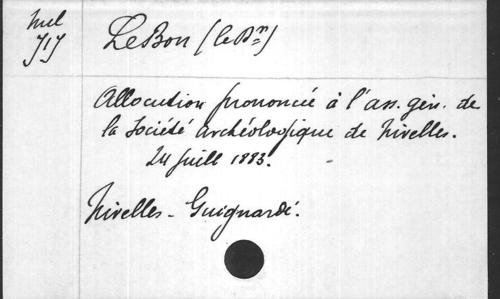 Mel
717
LeBon (le Bn)
Allocution prononcée à l'ass. gén. de
la Société archéologique de Nivelles.
24 juill 1883.
Nivelles - Guignardé.